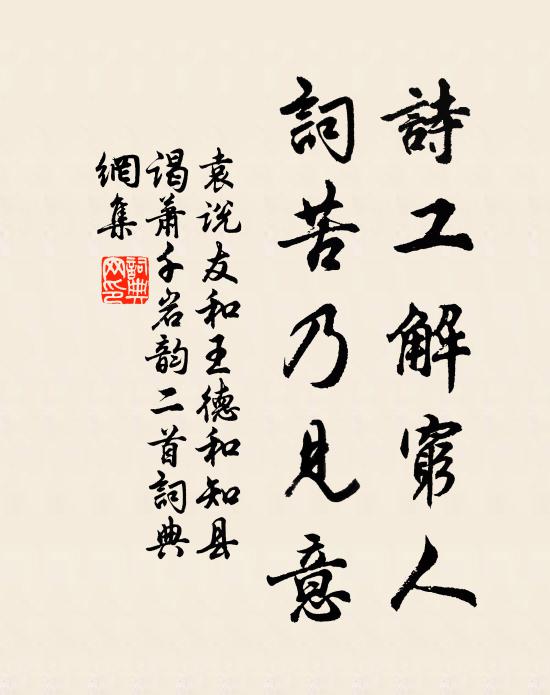 詩工解窮人
詞苦乃見意
袁说友和王德和知县
谒萧千岩韵二首詞典
網集
詞典網印